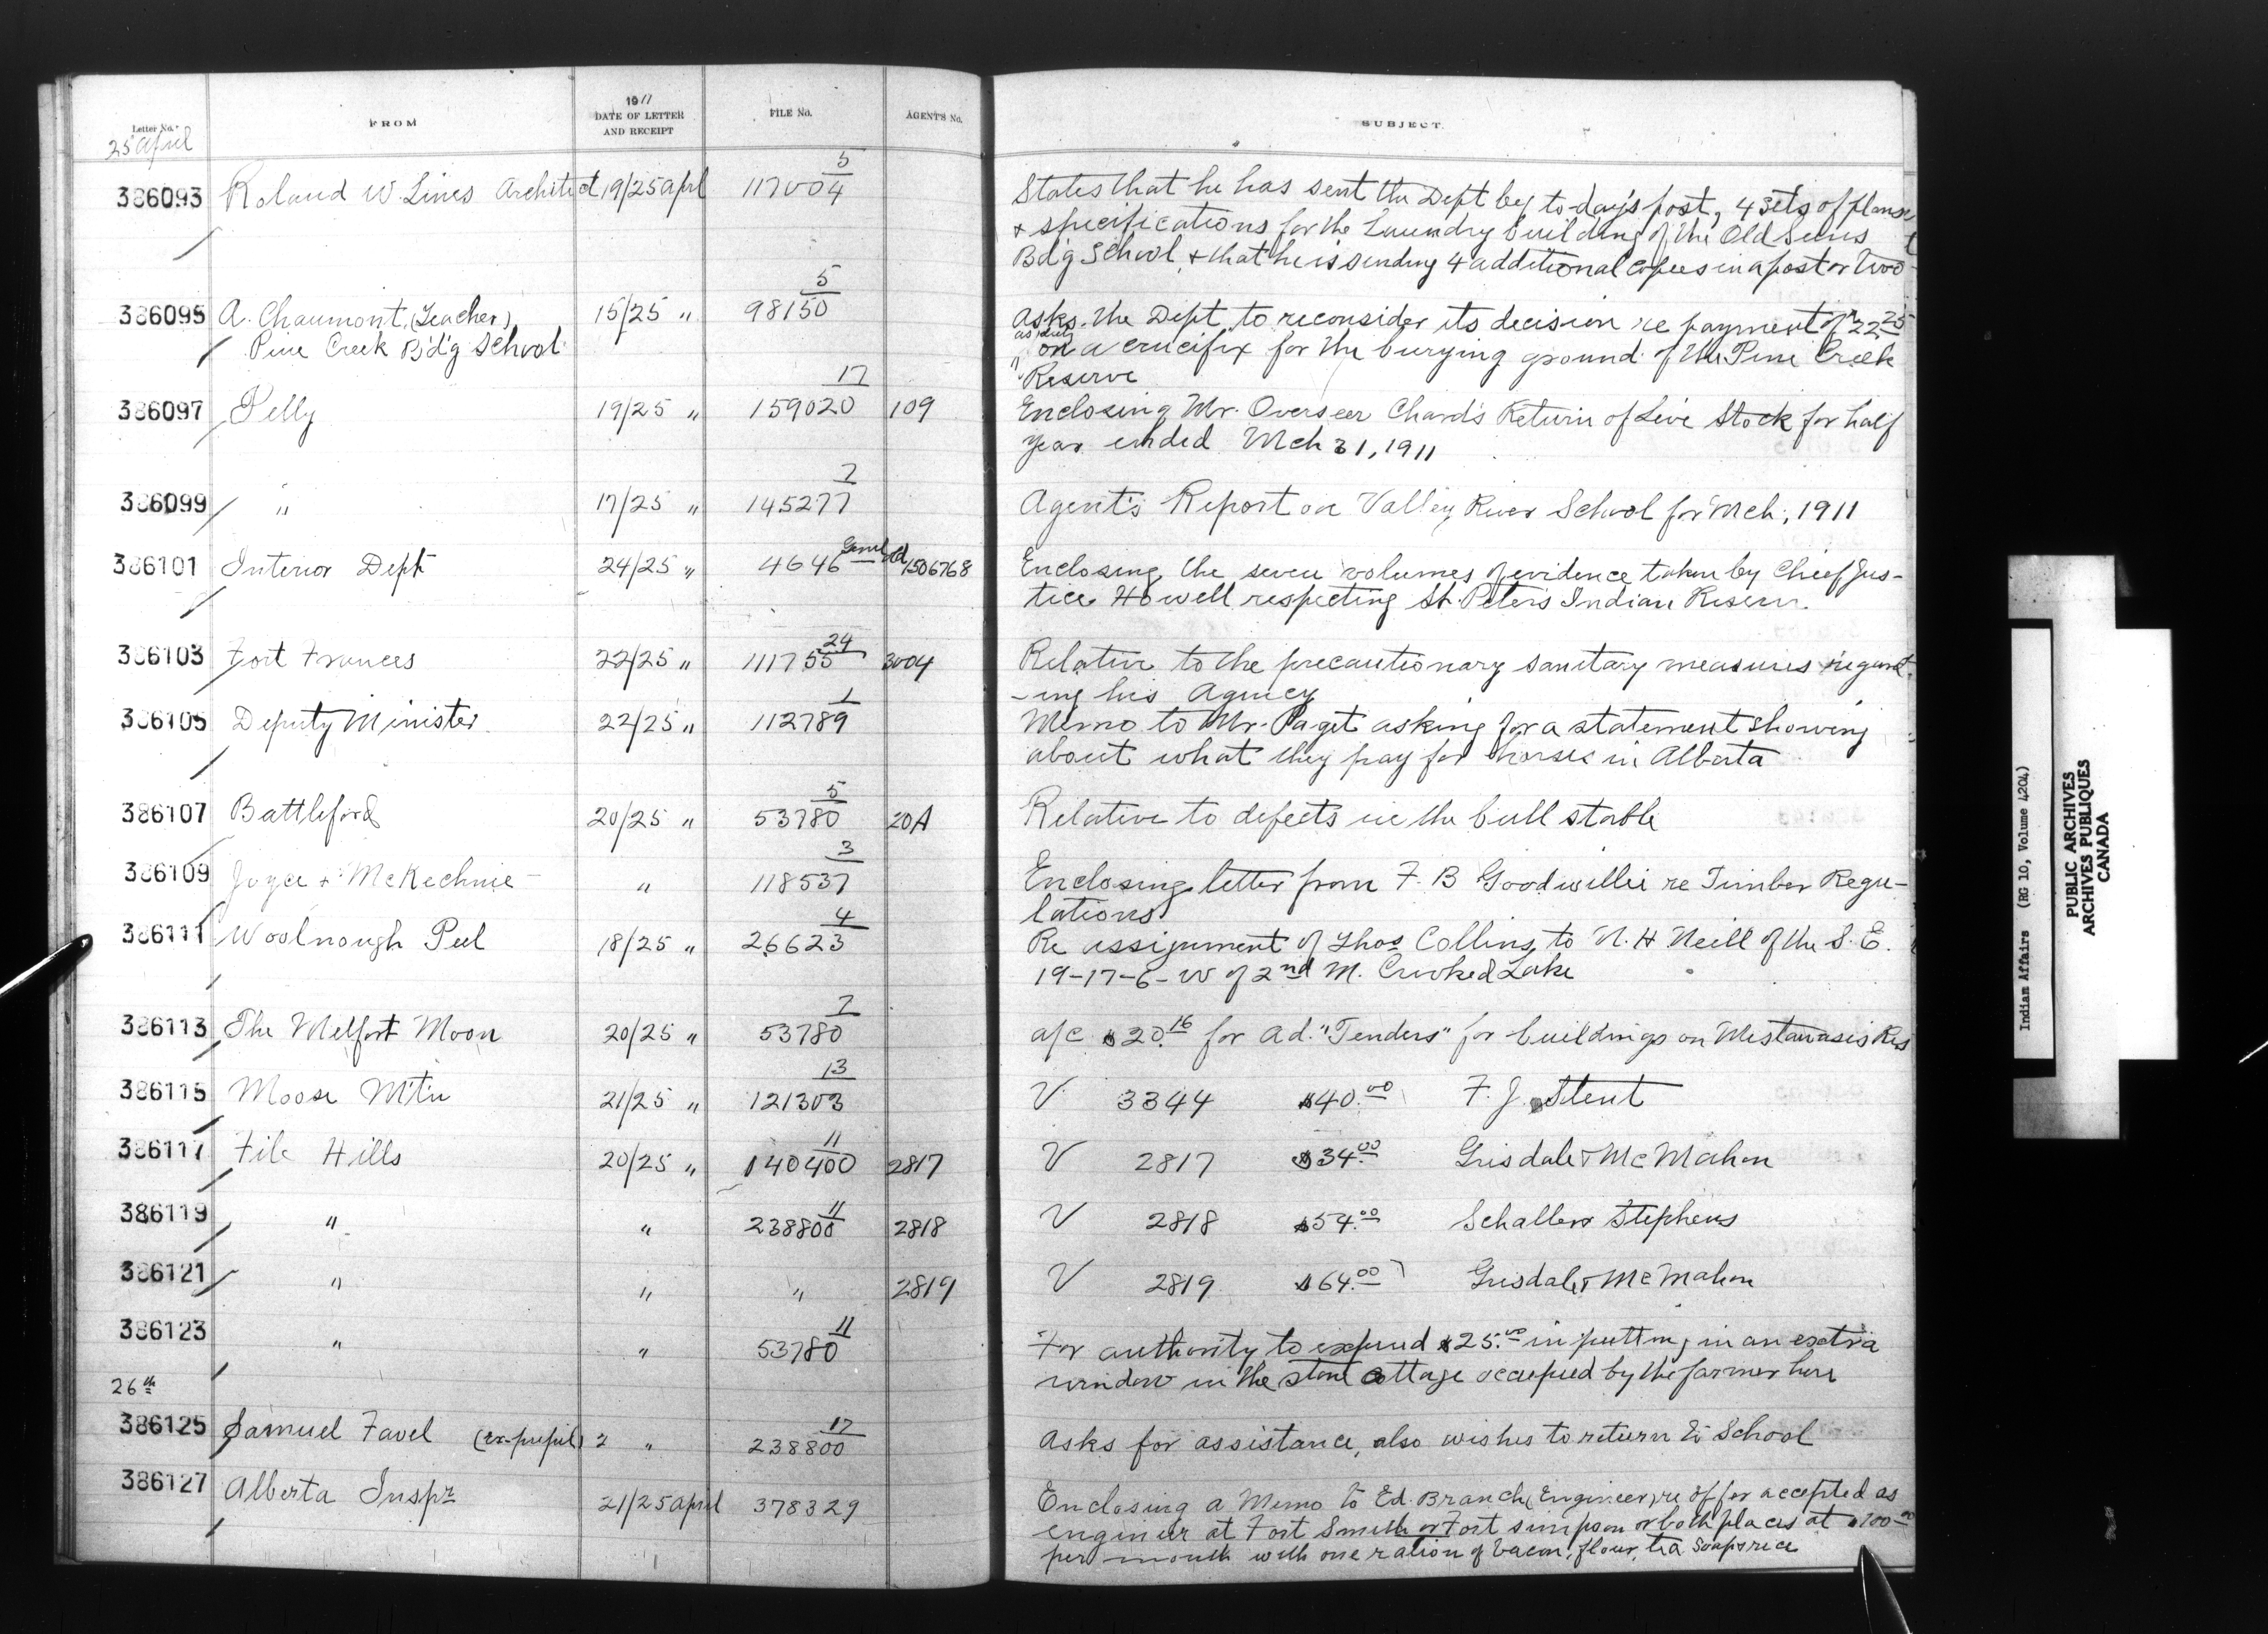 1911
Letter No. FROM DATE OF LETTER AND RECEIPT FILE No. AGENT'S No. SUBJECT.
25 April
386093 Roland W. Lines Architect 19/25 April 117004 5 States that he has sent the Dept by to-day's post, 4 sets of plans
& specifications for the Laundry building of the Old Suns
Bd'g School, & that he is sending 4 additional copies in a post or two
386095 A. Chaumont, (Teacher) 15/25 " 98150 5 Asks the Dept. to reconsider its decision re payment of $22.25
Pine Creek B'd'g School as duty on a crucifix for the burying ground of the Pine Creek
Reserve
386097 Pelly 19/25 " 159020 17 109 Enclosing Mr. Overseer Chard's Return of Live Stock for half
year ended Mch 31, 1911
386099 " 17/25 " 145277 7 Agent's Report on Valley River School for Mch, 1911
386101 Interior Dept 24/25 " 4646 Genl 1506768 Enclosing the seven volumes of evidence taken by Chief Jus-
tice Howell respecting St. Peter's Indian Reserve.
386103 Fort Frances 22/25 " 111755 24 3004 Relative to the precautionary sanitary measures regard-
-ing his Agency
386105 Deputy Minister 22/25 " 112789 1 Memo to Mr. Paget asking for a statement showing
about what they pay for horses in Alberta
386107 Battleford 20/25 " 53780 5 20A Relative to defects in the bull stable
386109 Joyce & McKechnie " 118537 3 Enclosing letter from F. B Goodwillie re Timber Regu-
lations
386111 Woolnough Peel 18/25 " 26623 4 Re assignment of Thos Collins to N. H Neill of the S. E.
19-17-6-W of 2nd M. Crooked Lake
386113 The Melfort Moon 20/25 " 53780 7 a/c $20.16 for Ad. "Tenders" for buildings on Mistawasis Res
386115 Moose Mtn 21/25 " 121303 13 V 3344 $40.00 F. J. Stent
386117 File Hills 20/25 " 140400 11 2817 V 2817 $34.00 Grisdale & McMahon
386119 " " 238800 11 2818 V 2818 $54.00 Schaller Stephens
386121 " " " 2819 V 2819 $64.00 Grisdale & McMahon
386123 " " 53780 11 For authority to expend $25.00 in putting in an extra
window in the stone cottage occupied by the farmer here
26th
386125 Samuel Favel (ex-pupil) 2 " 238800 17 Asks for assistance, also wishes to return to School
386127 Alberta Inspr 21/25 April 378329 Enclosing a Memo to Ed. Branch (Engineer) re offer accepted as
engineer at Fort Smith or Fort Simpson or both places at $100.00
per month with one ration of bacon, flour, tea Soap & rice
Indian Affairs (RG 10, Volume 4204)
PUBLIC ARCHIVES
ARCHIVES PUBLIQUES
CANADA